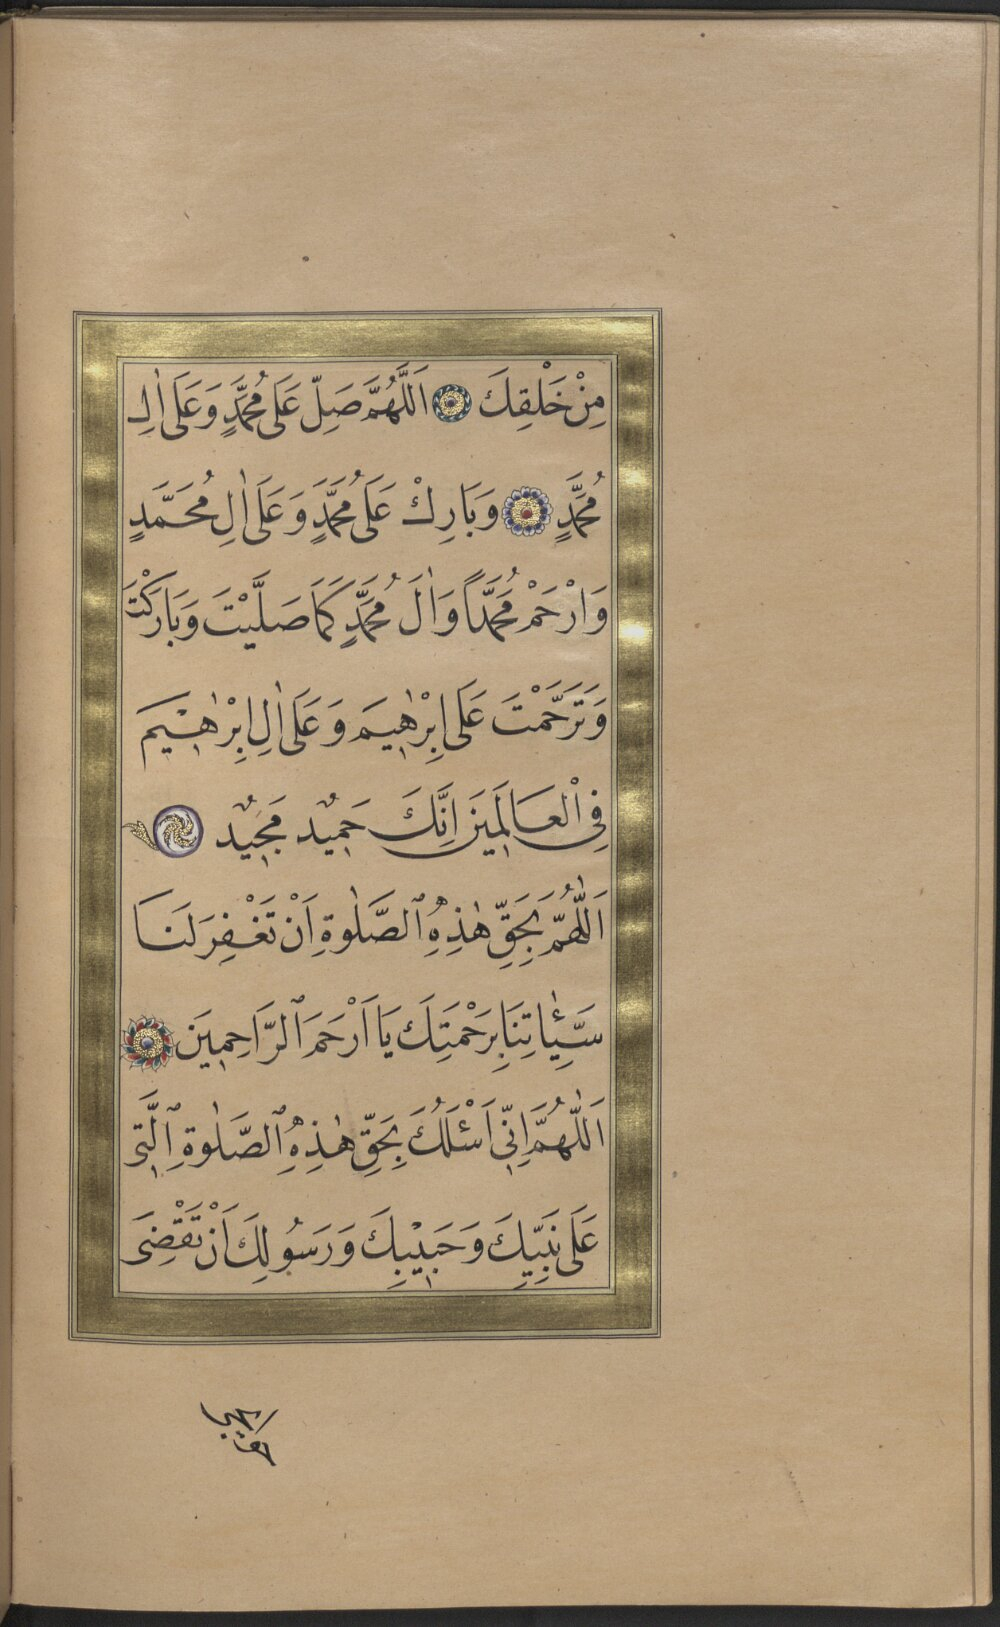 مِنْ خَلْقِكَ اَللّٰهُمَّ صَلِّ عَلَى مُحَمَّدٍ وَعَلَى اٰلِ
مُحَمَّدٍ وَبَارِكْ عَلَى مُحَمَّدٍ وَعَلَى اٰلِ مُحَمَّدٍ
وَارْحَمْ مُحَمَّدًا وَاٰلَ مُحَمَّدٍ كَمَا صَلَّيْتَ وَبَارَكْتَ
وَتَرَحَّمْتَ عَلَى اِبْرٰهِيمَ وَعَلَى اٰلِ اِبْرٰهِيمَ
فِى الْعَالَمِينَ اِنَّكَ حَمِيدٌ مَجِيدٌ
اَللّٰهُمَّ بِحَقِّ هٰذِهِ الصَّلٰوةِ اَنْ تَغْفِرَ لَنَا
سَيِّئٰاتِنَا بِرَحْمَتِكَ يَا اَرْحَمَ الرَّاحِمِينَ
اَللّٰهُمَّ اِنِّى اَسْئَلُكَ بِحَقِّ هٰذِهِ الصَّلٰوةِ الَّتِى
عَلَى نَبِيِّكَ وَحَبِيبِكَ وَرَسُولِكَ اَنْ تَقْضِىَ